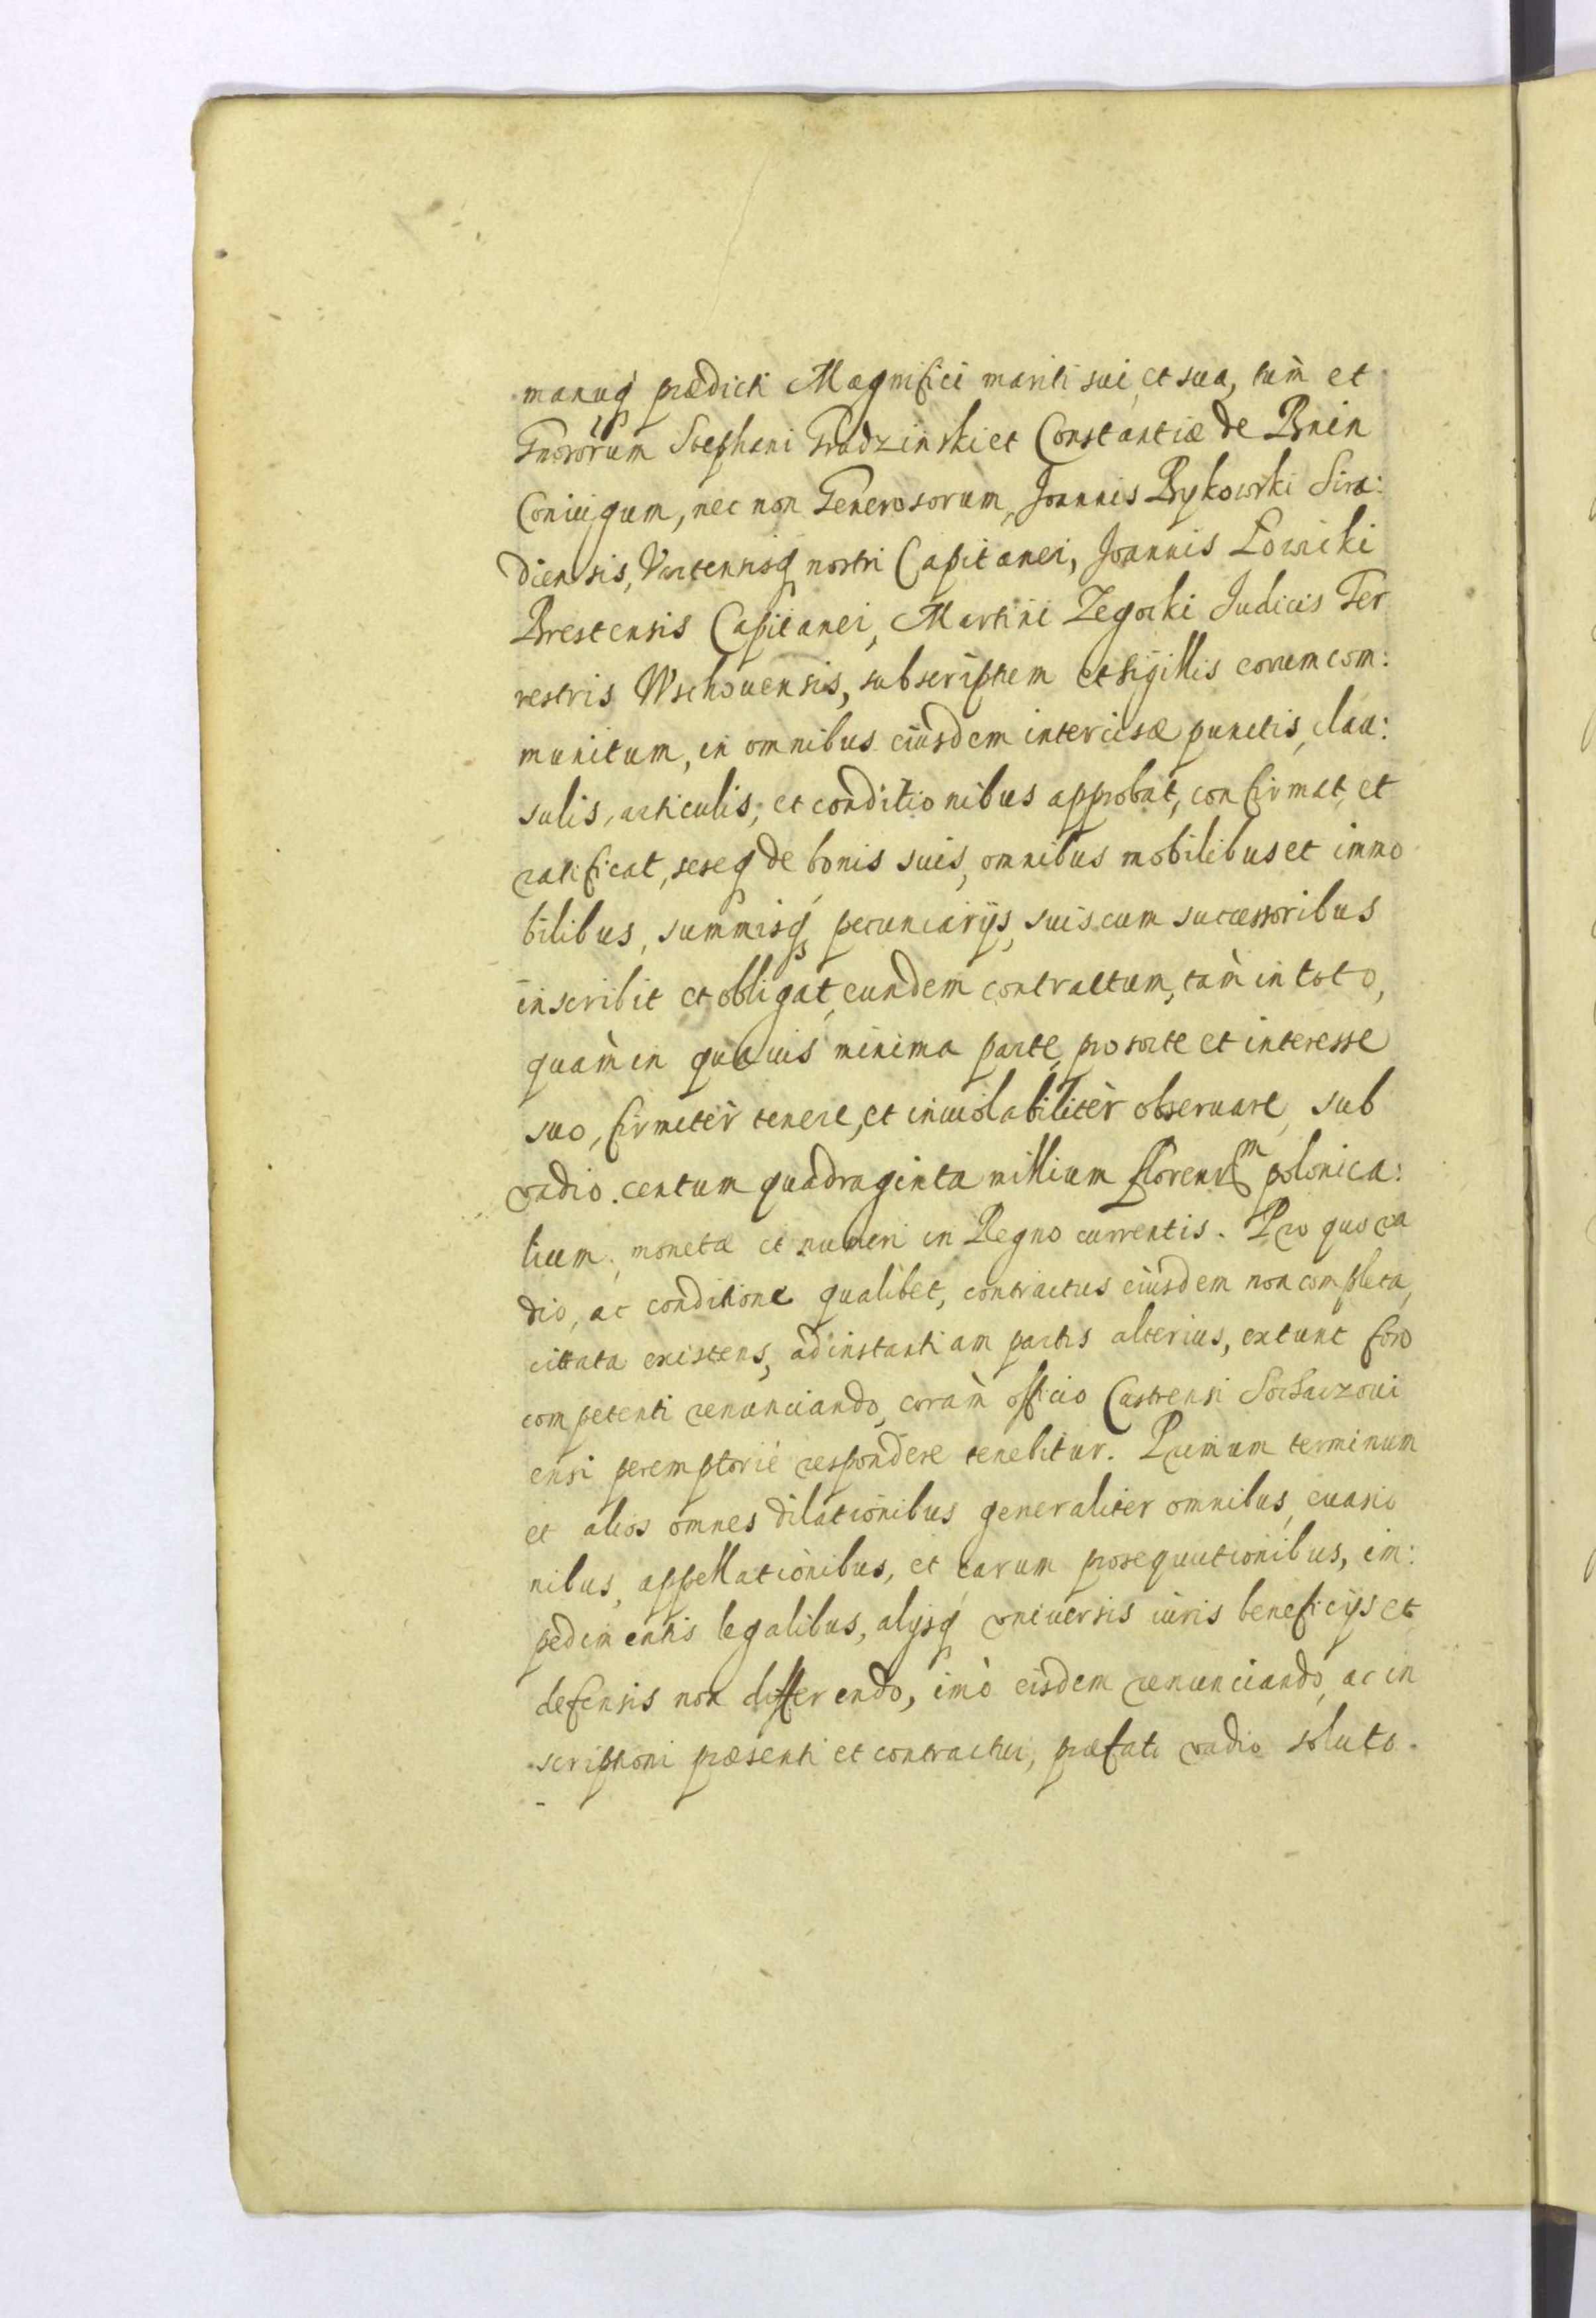 manuq́ prædicti Magnifici mariti sui, et sua, tùm et
Gnosorum Stephani Grudzinski et Constantiæ de Bnin
Coniugum, nec non Generosorum, Joannis Bykowski Sira:
diensis, Vartensisq́ nostri Capitanei, Joannis Łowicki
Brestensis Capitanei, Martini Zegocki Judicis Ter
restris Wschouensis, subscriptum et sigillis eorum com:
munitum, in omnibus eiusdem intercisæ punctis, clau:
sulis, articulis, et conditionibus approbat, confirmat, et
ratificat, seseq́ de bonis suis, omnibus mobilibus et immo
bilibus, summisq́ pecuniarijs, suis cum successoribus
inscribit et obligat, eundem contractum, tàm in toto,
quàm in quauis minima parte, pro sorte et interesse
suo, firmitèr tenere, et inuiolabilitèr obseruare, sub
vadio centum quadraginta millium florenorᵐ polonica:
lium, monetæ et numeri in Regno currentis. Pro quo va
dio, ac conditione qualibet, contractus eiusdem non completa,
cittata existens, ad instantiam partis alterius, extunc foro
competenti renunciando, coràm officio Castrensi Sochaczoui
ensi peremptoriè respondere tenebitur. Primum terminum
et alios omnes dilationibus generaliter omnibus, euasio
nibus, appellationibus, et earum prosequutionibus, im:
pedimentis legalibus, alijsq́ vniuersis iuris beneficijs et
defensis non differendo, imò eisdem renunciando, ac in
scriptioni præsenti et contractui, præfati vadio soluto.